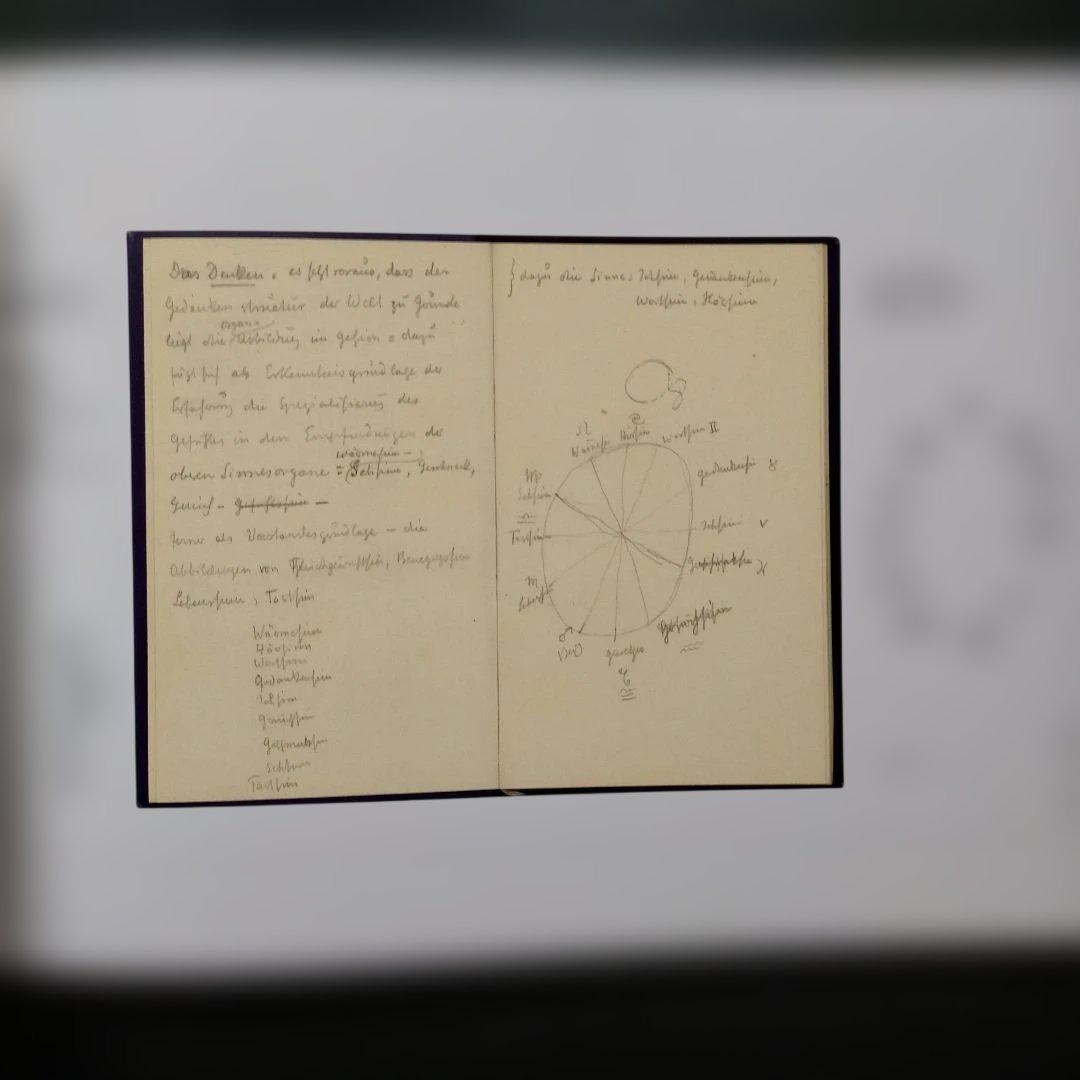 Das Denken. es setzt voraus, dass der
Gedankenstructur der Welt zu Grunde
organ.
liegt die Abbildung im Gehirn = dazu
fügt sich als Erkenntnisgrundlage der
Erfahrung die Spezialisierung des
Gefühles in den Empfindungen der
Wärmesinn –
oberen Sinnesorgane = Sehsinn, Geschmack,
Geruch –
ferner als Verstandesgrundlage – die
Abbildungen von Gleichgewichtssin, Bewegungssinn
Lebenssinn, Tastsinn
Wärmesinn
Hörsinn
Wortsinn
Gedankensinn
Ichsinn
Geruchssinn
Geschmacksinn
Sehsinn
Tastsinn
} dazu die Sinne: Ichsinn, Gedankensinn,
Wortsinn, Hörsinn
♎ ♋
Wärmesin Hörsinn Wortsinn II
♍
Sehsinn Gedankensin ♉
Tastsinn Ichsinn
♏ ♓
Lebenssin